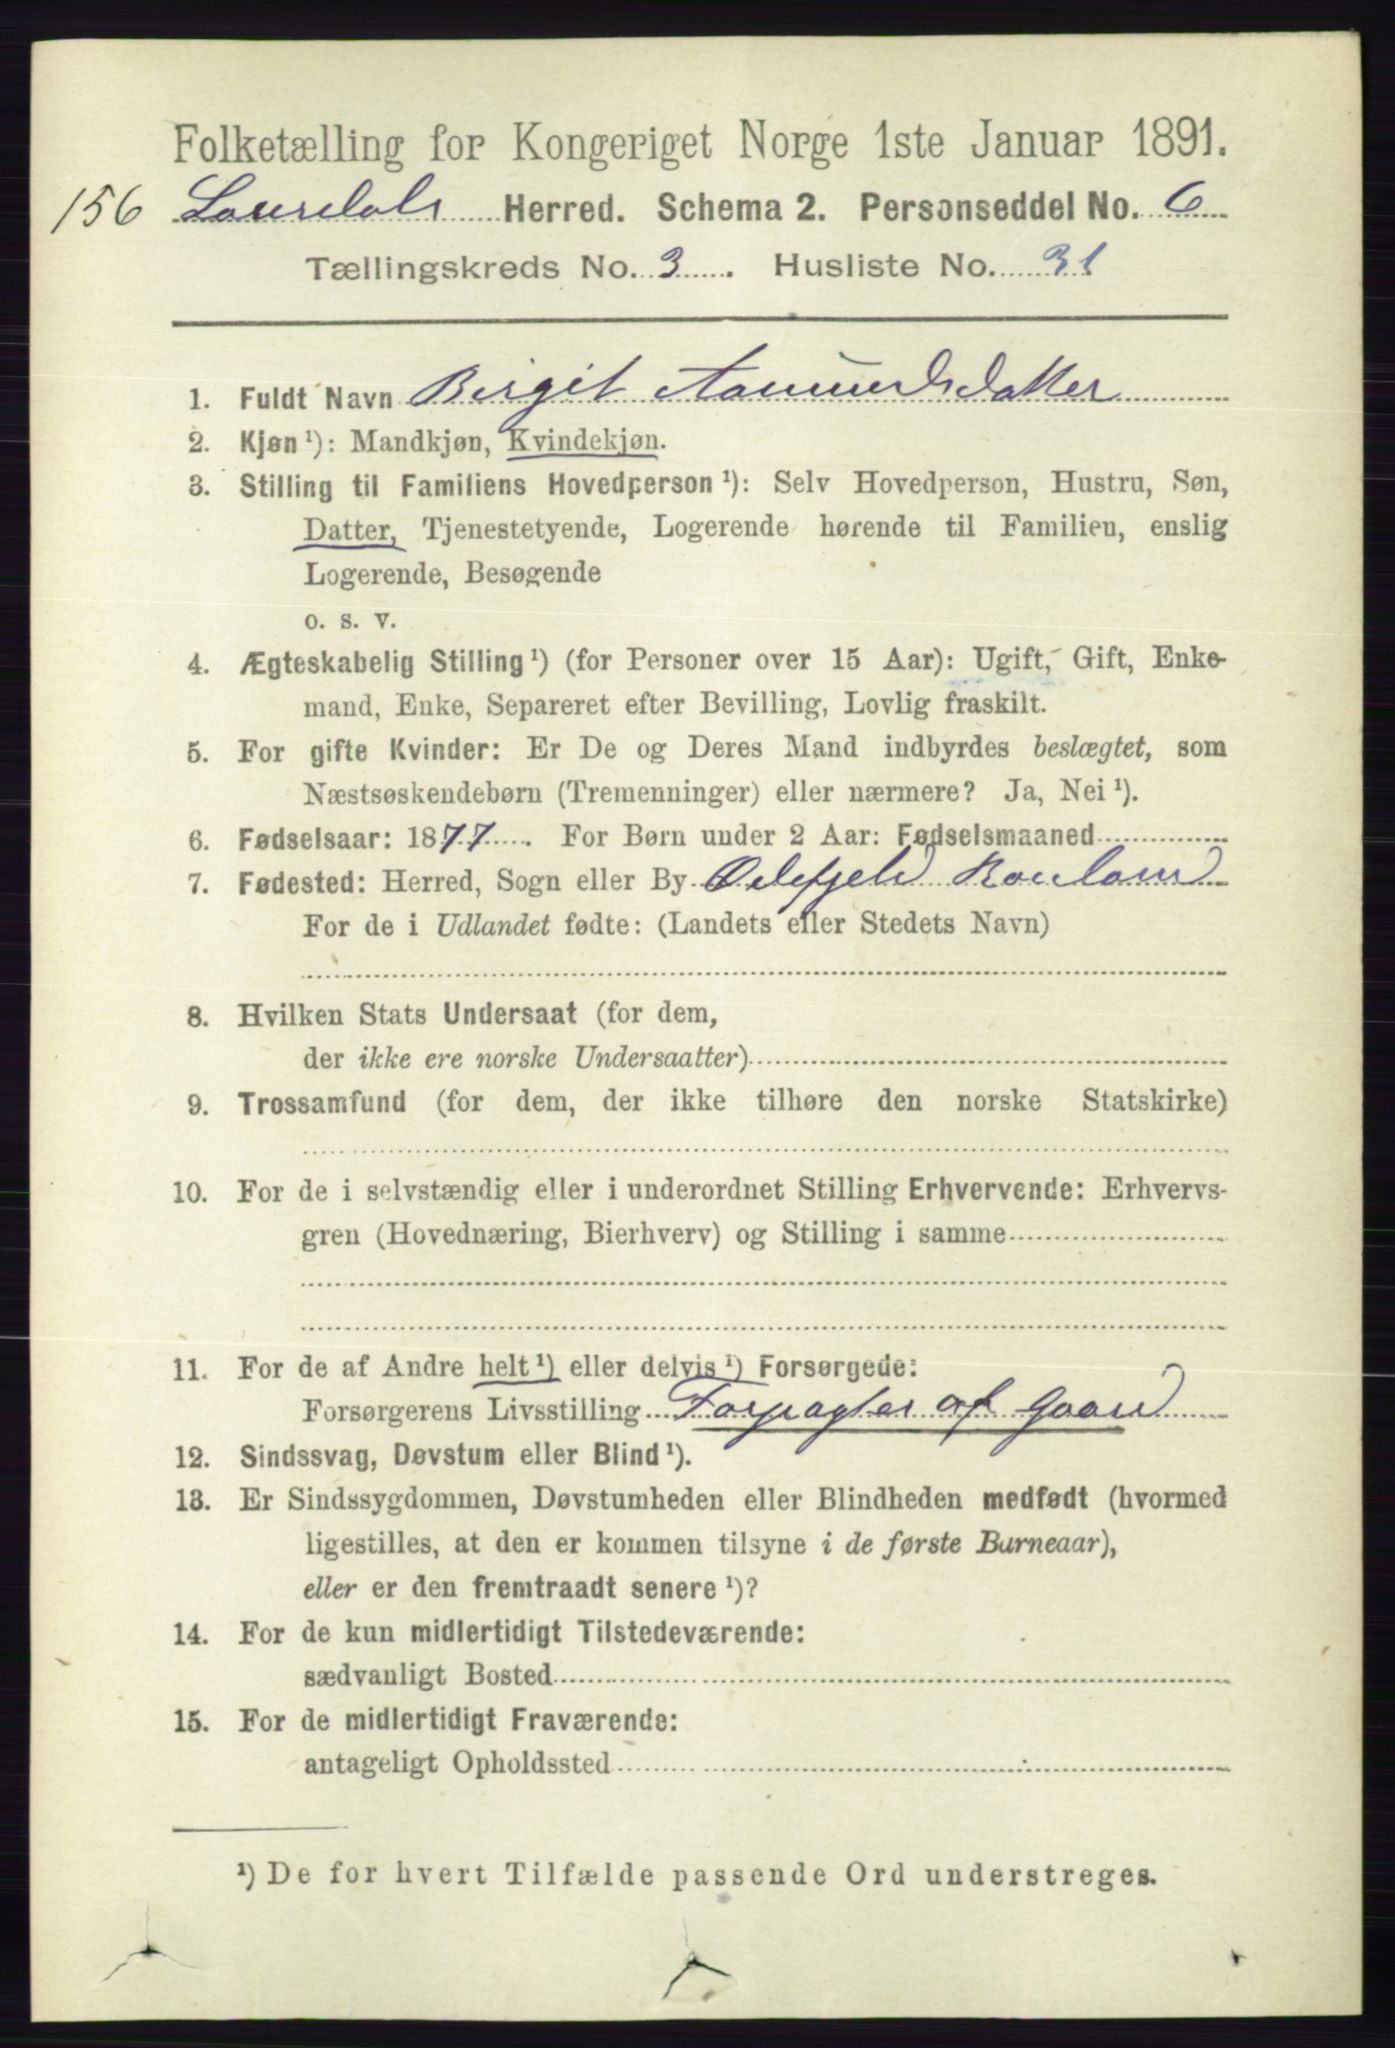 Folketælling for Kongeriget Norge 1ste Januar 1891.
156 Laurdals Herred. Schema 2. Personseddel No. 6
Tællingskreds No. 3. Husliste No. 31
1. Fuldt Navn Birgit Aamundsdatter
2. Kjøn ¹): Mandkjøn, Kvindekjøn.
3. Stilling til Familiens Hovedperson ¹): Selv Hovedperson, Hustru, Søn,
Datter, Tjenestetyende, Logerende hørende til Familien, enslig
Logerende, Besøgende
o. s. v.
4. Ægteskabelig Stilling ¹) (for Personer over 15 Aar): Ugift, Gift, Enke-
mand, Enke, Separeret efter Bevilling, Lovlig fraskilt.
5. For gifte Kvinder: Er De og Deres Mand indbyrdes beslægtet, som
Næstsøskendebørn (Tremenninger) eller nærmere? Ja, Nei ¹).
6. Fødselsaar: 1877. For Børn under 2 Aar: Fødselsmaaned
7. Fødested: Herred, Sogn eller By Øifjeld Rauland
For de i Udlandet fødte: (Landets eller Stedets Navn)
8. Hvilken Stats Undersaat (for dem,
der ikke ere norske Undersaatter)
9. Trossamfund (for dem, der ikke tilhøre den norske Statskirke)
10. For de i selvstændig eller i underordnet Stilling Erhvervende: Erhvervs-
gren (Hovednæring, Bierhverv) og Stilling i samme
11. For de af Andre helt ¹) eller delvis ¹) Forsørgede:
Forsørgerens Livsstilling Forpagter af Gaard
12. Sindssvag, Døvstum eller Blind ¹).
13. Er Sindssygdommen, Døvstumheden eller Blindheden medfødt (hvormed
ligestilles, at den er kommen tilsyne i de første Barneaar),
eller er den fremtraadt senere ¹)?
14. For de kun midlertidigt Tilstedeværende:
sædvanligt Bosted
15. For de midlertidigt Fraværende:
antageligt Opholdssted
¹) De for hvert Tilfælde passende Ord understreges.